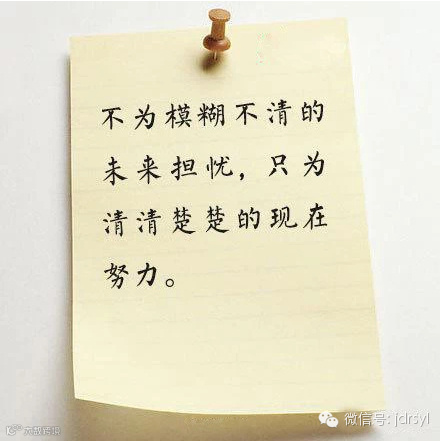 不为模糊不清的
未来担忧，只为
清清楚楚的现在
努力。
微信号: jdrsyl